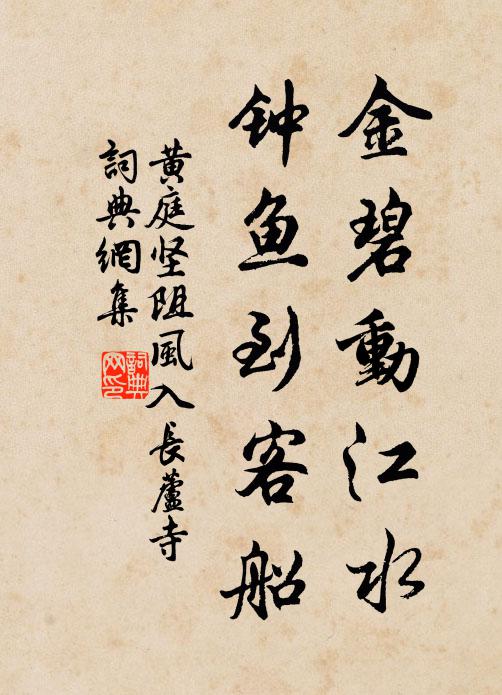 金碧動江水
钟鱼到客船
黃庭坚阻風入長蘆寺
詞典網集
詞典网印